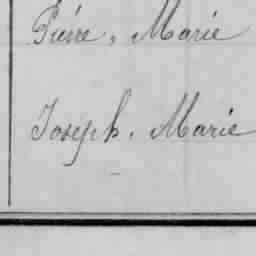 Pierre, Marie
Joseph, Marie